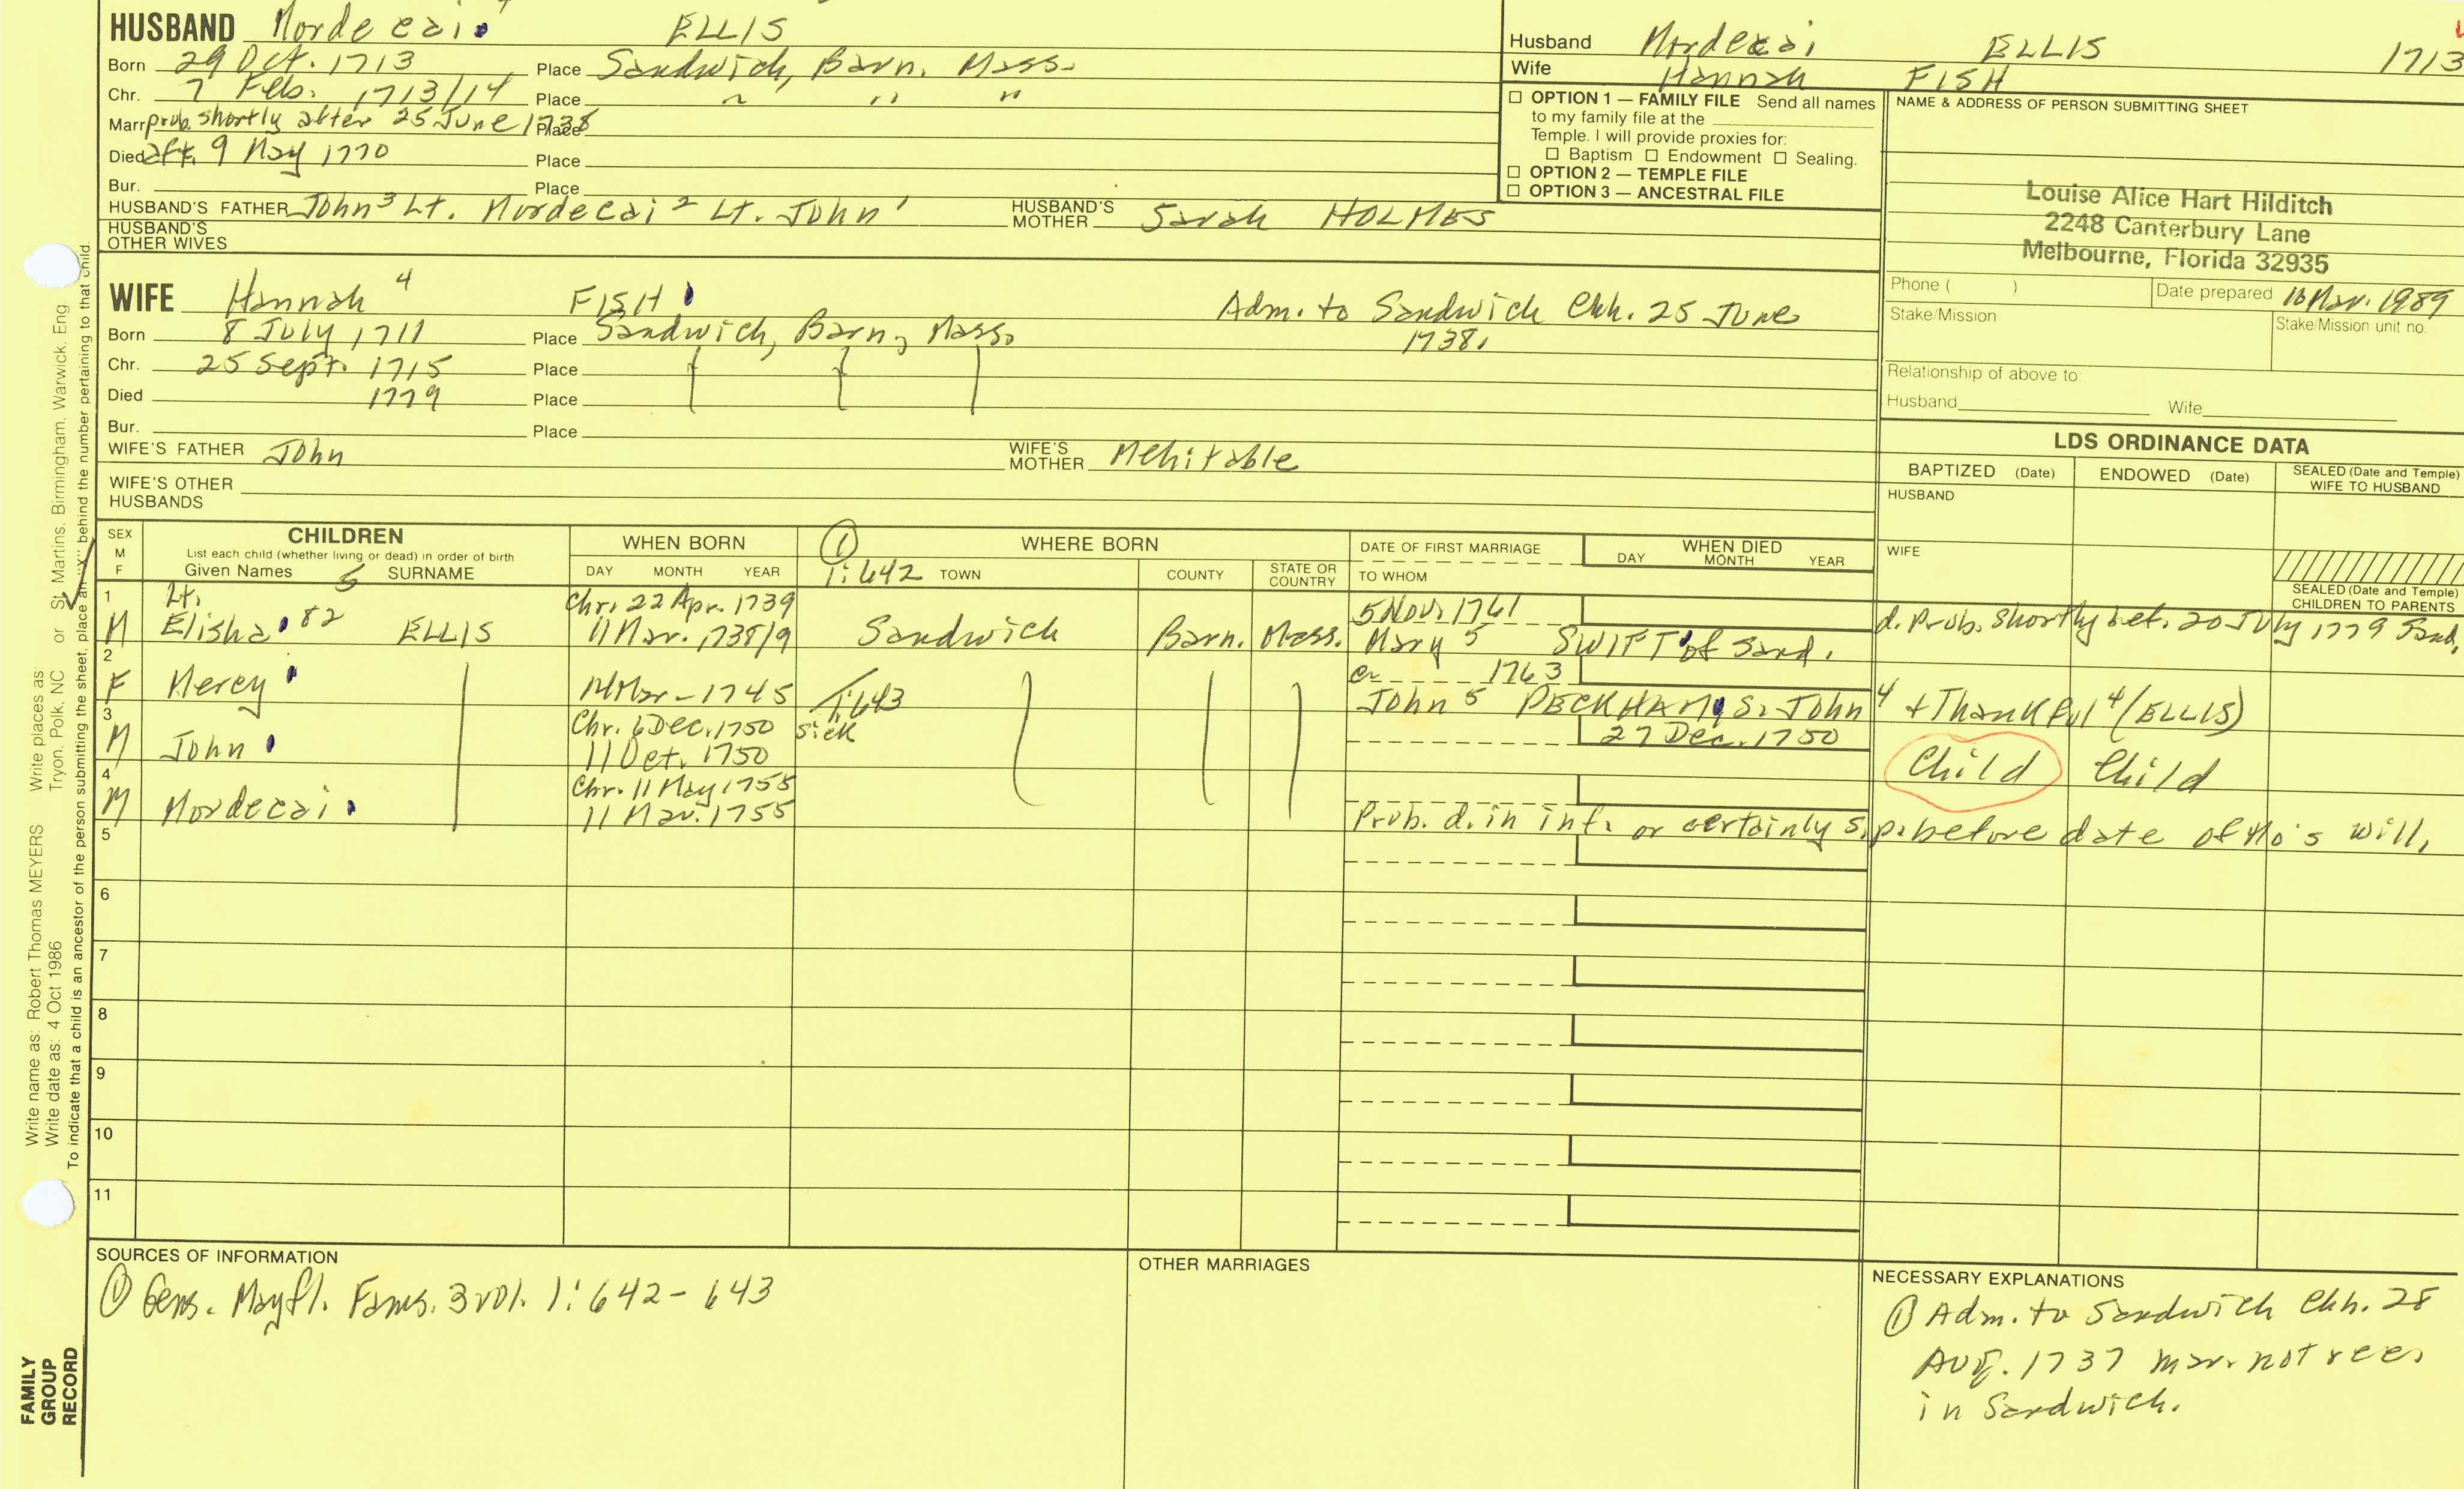 HUSBAND Mordecai ELLIS
Born 29 Oct. 1713 Place Sandwich, Barn. Mass.
Chr. 7 Feb. 1713/14 Place " " "
Marr. prob. shortly after 25 June 1738 Place
Died aft. 9 May 1770 Place
Bur. Place
HUSBAND'S FATHER John³ Lt. Mordecai² Lt. John¹ HUSBAND'S MOTHER Sarah HOLMES
HUSBAND'S OTHER WIVES
Husband Mordecai ELLIS 1713
Wife Hannah FISH
☐ OPTION 1 — FAMILY FILE Send all names
to my family file at the
Temple. I will provide proxies for:
☐ Baptism ☐ Endowment ☐ Sealing.
☐ OPTION 2 — TEMPLE FILE
☐ OPTION 3 — ANCESTRAL FILE
NAME & ADDRESS OF PERSON SUBMITTING SHEET
Louise Alice Hart Hilditch
2248 Canterbury Lane
Melbourne, Florida 32935
Phone ( ) Date prepared 16 Mar. 1989
Stake/Mission Stake/Mission unit no.
Relationship of above to:
Husband Wife
WIFE Hannah⁴ FISH Adm. to Sandwich Chh. 25 June
1738.
Born 8 July 1711 Place Sandwich, Barn, Mass
Chr. 25 Sept. 1715 Place
Died 1779 Place
Bur. Place
WIFE'S FATHER John WIFE'S MOTHER Mehitable
WIFE'S OTHER HUSBANDS
LDS ORDINANCE DATA
BAPTIZED (Date) ENDOWED (Date) SEALED (Date and Temple) WIFE TO HUSBAND
HUSBAND
WIFE
SEALED (Date and Temple) CHILDREN TO PARENTS
SEX M F
CHILDREN
List each child (whether living or dead) in order of birth
Given Names 5 SURNAME
WHEN BORN
DAY MONTH YEAR
① 1:642
WHERE BORN
TOWN COUNTY STATE OR COUNTRY
DATE OF FIRST MARRIAGE
TO WHOM
WHEN DIED
DAY MONTH YEAR
1 Lt. Chr. 22 Apr. 1739 5 Nov. 1761
M Elisha 82 ELLIS 11 Mar. 1738/9 Sandwich Barn. Mass. Mary 5 SWIFT of Sand. d. prob. shortly bef. 20 July 1779 Sand.
2 ca 1763
F Mercy 14 Mar - 1745 1:643 John 5 PECKHAM, S. John⁴ + Thankful⁴ (ELLIS)
3 Chr. 6 Dec. 1750 sick 27 Dec. 1750
M John 11 Oct. 1750 Child Child
4 Chr. 11 May 1755
M Mordecai 11 Mar. 1755 Prob. d. in inf. or certainly s.p. before date of Mo's will.
5
6
7
8
9
10
11
SOURCES OF INFORMATION
① Gens. Mayfl. Fams. 3 vol. 1:642-643
OTHER MARRIAGES
NECESSARY EXPLANATIONS
① Adm. to Sandwich Chh. 28
Aug. 1737 mar. not rec.
in Sandwich.
Write name as: Robert Thomas MEYERS Write places as: Tryon, Polk, NC or St. Martins, Birmingham, Warwick, Eng
Write date as: 4 Oct 1986
To indicate that a child is an ancestor of the person submitting the sheet, place an "X" behind the number pertaining to that child.
FAMILY
GROUP
RECORD